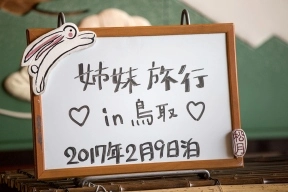 姉妹旅行
♡ in 鳥取 ♡
2017年2月9日泊